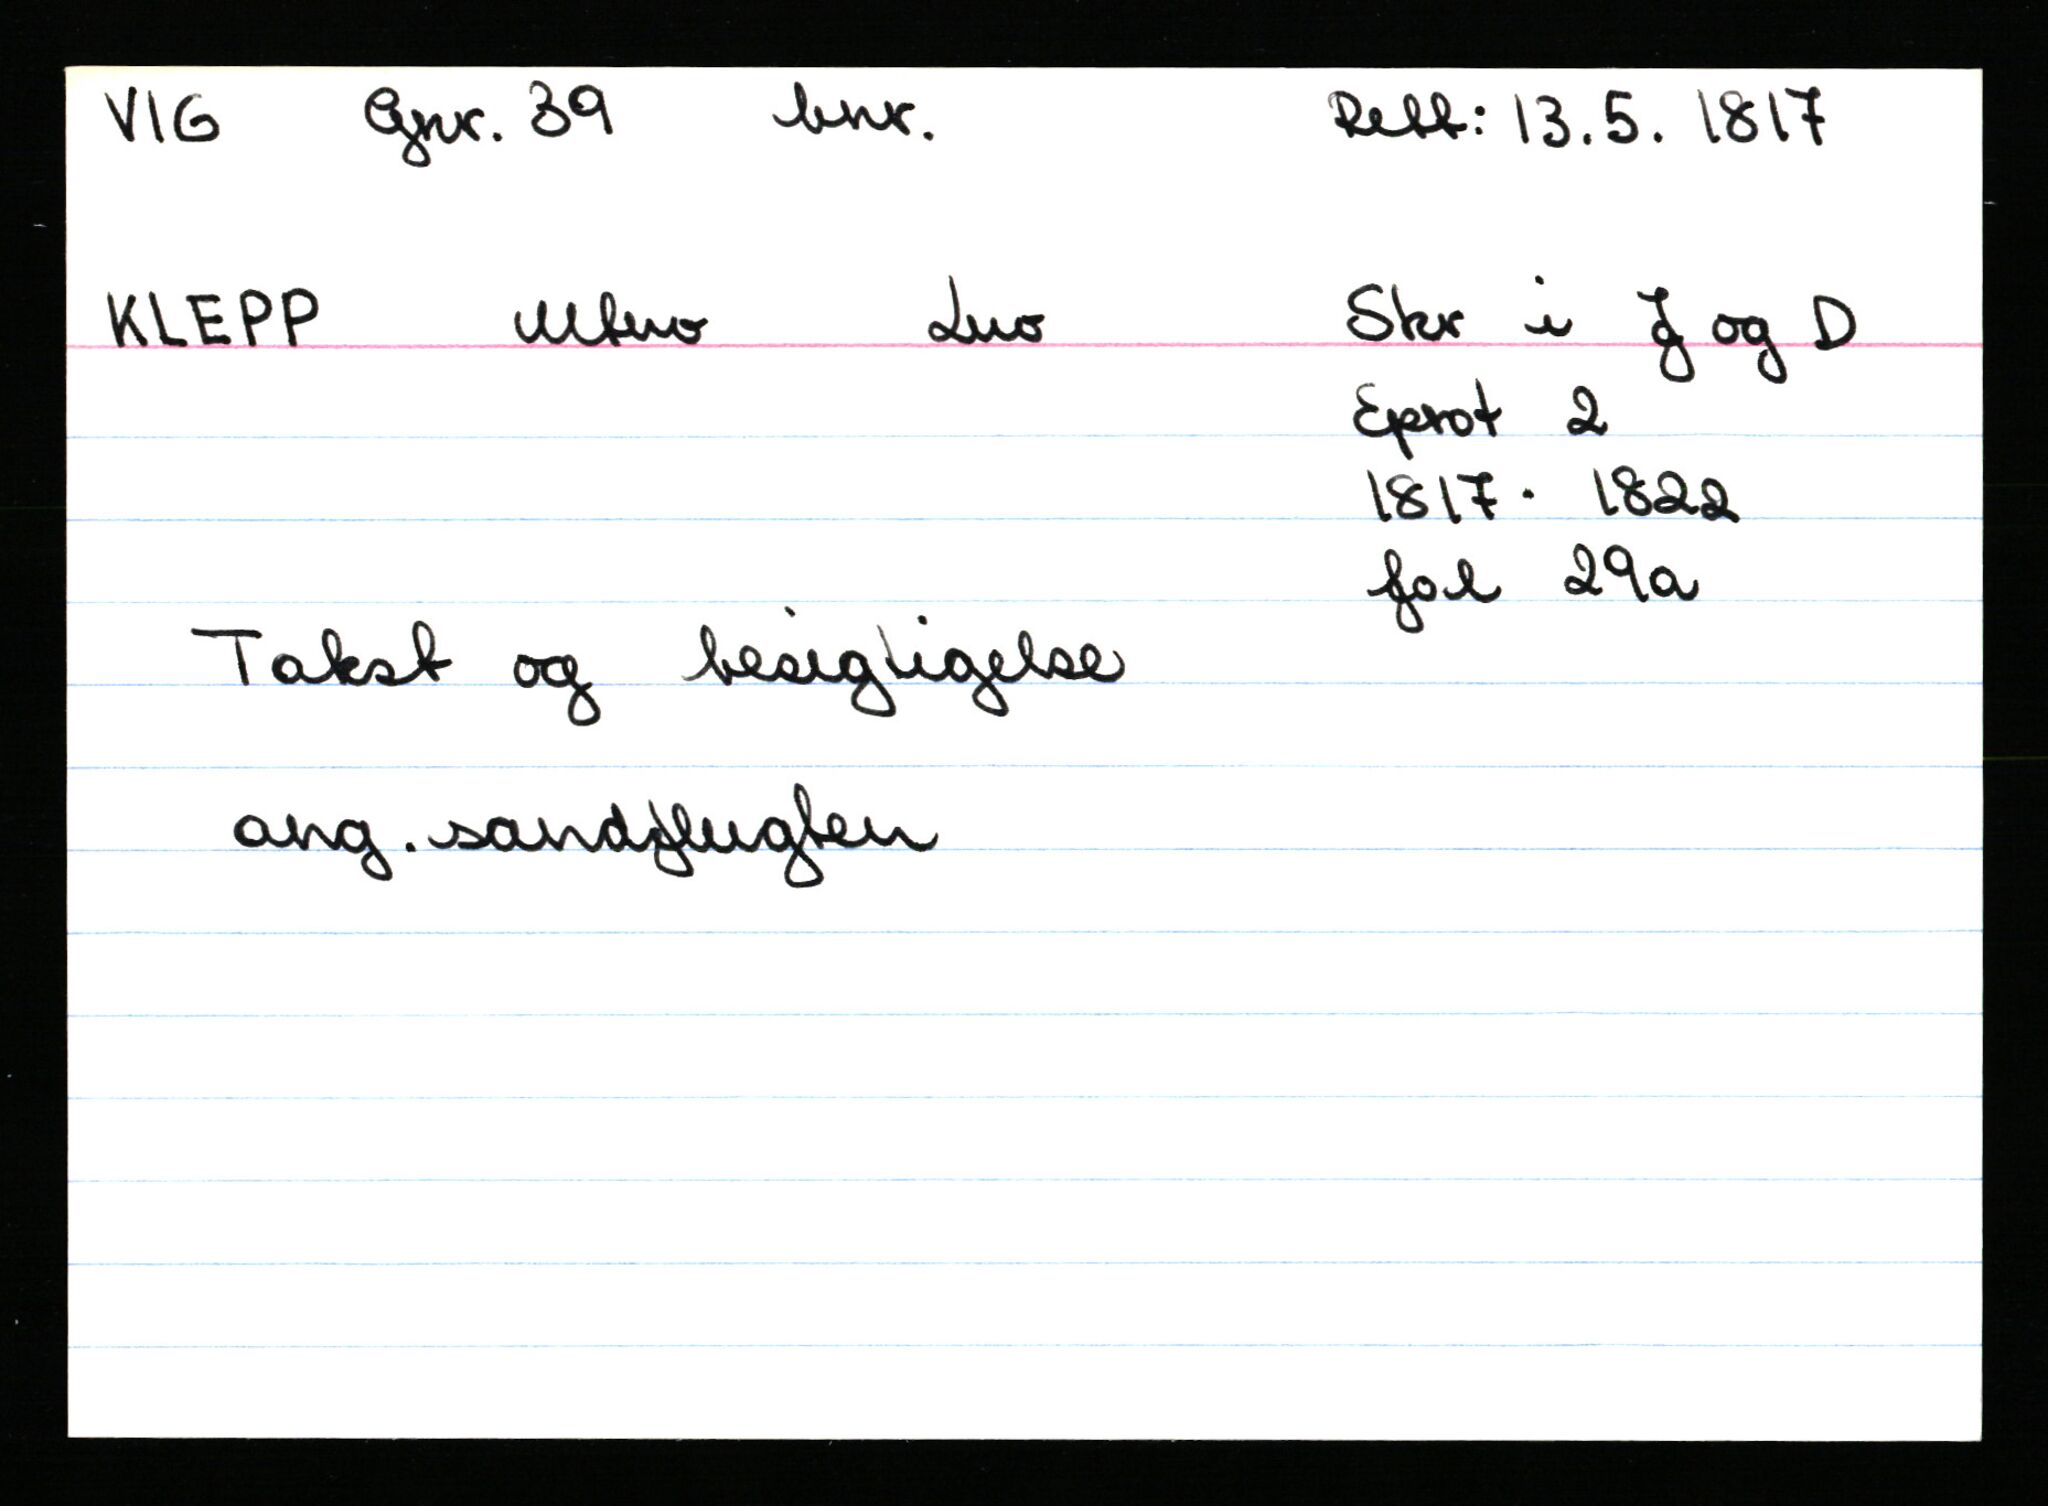 VIG Gnr. 39 bnr. Rett: 13.5. 1817
KLEPP Mtno Lno Skr i J og D
Eprot 2
1817 - 1822
fol 29a
Takst og besigtigelse
ang. sandflugten